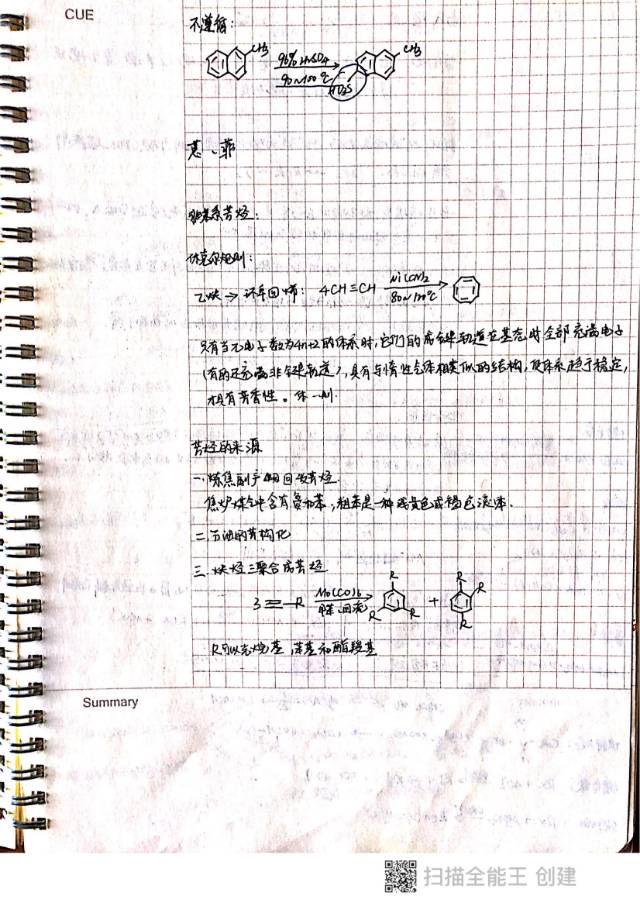 CUE
不遵循:
CH3 96% H2SO4 90~100℃ CH3
HO3S
蒽、菲
非苯系芳烃:
休克尔规则:
乙炔 → 环辛四烯: 4CH≡CH Ni(CN)2 80~120℃
只有当π电子数为4n+2的体系时,它们的成键轨道在基态时全部充满电子
(有的还充满非键轨道),具有与惰性气体相类似的结构,使体系趋于稳定,
才具有芳香性。休一川.
芳烃的来源
一.炼焦副产回收芳烃.
焦炉煤气中含有氨和苯,粗苯是一种浅黄色或褐色液体.
二.石油的芳构化
三.炔烃三聚合成芳烃
3 ≡—R Mo(CO)6 甲苯,回流 R R R + R R R
R可以为烷基,苯基和酯羰基
Summary
扫描全能王 创建